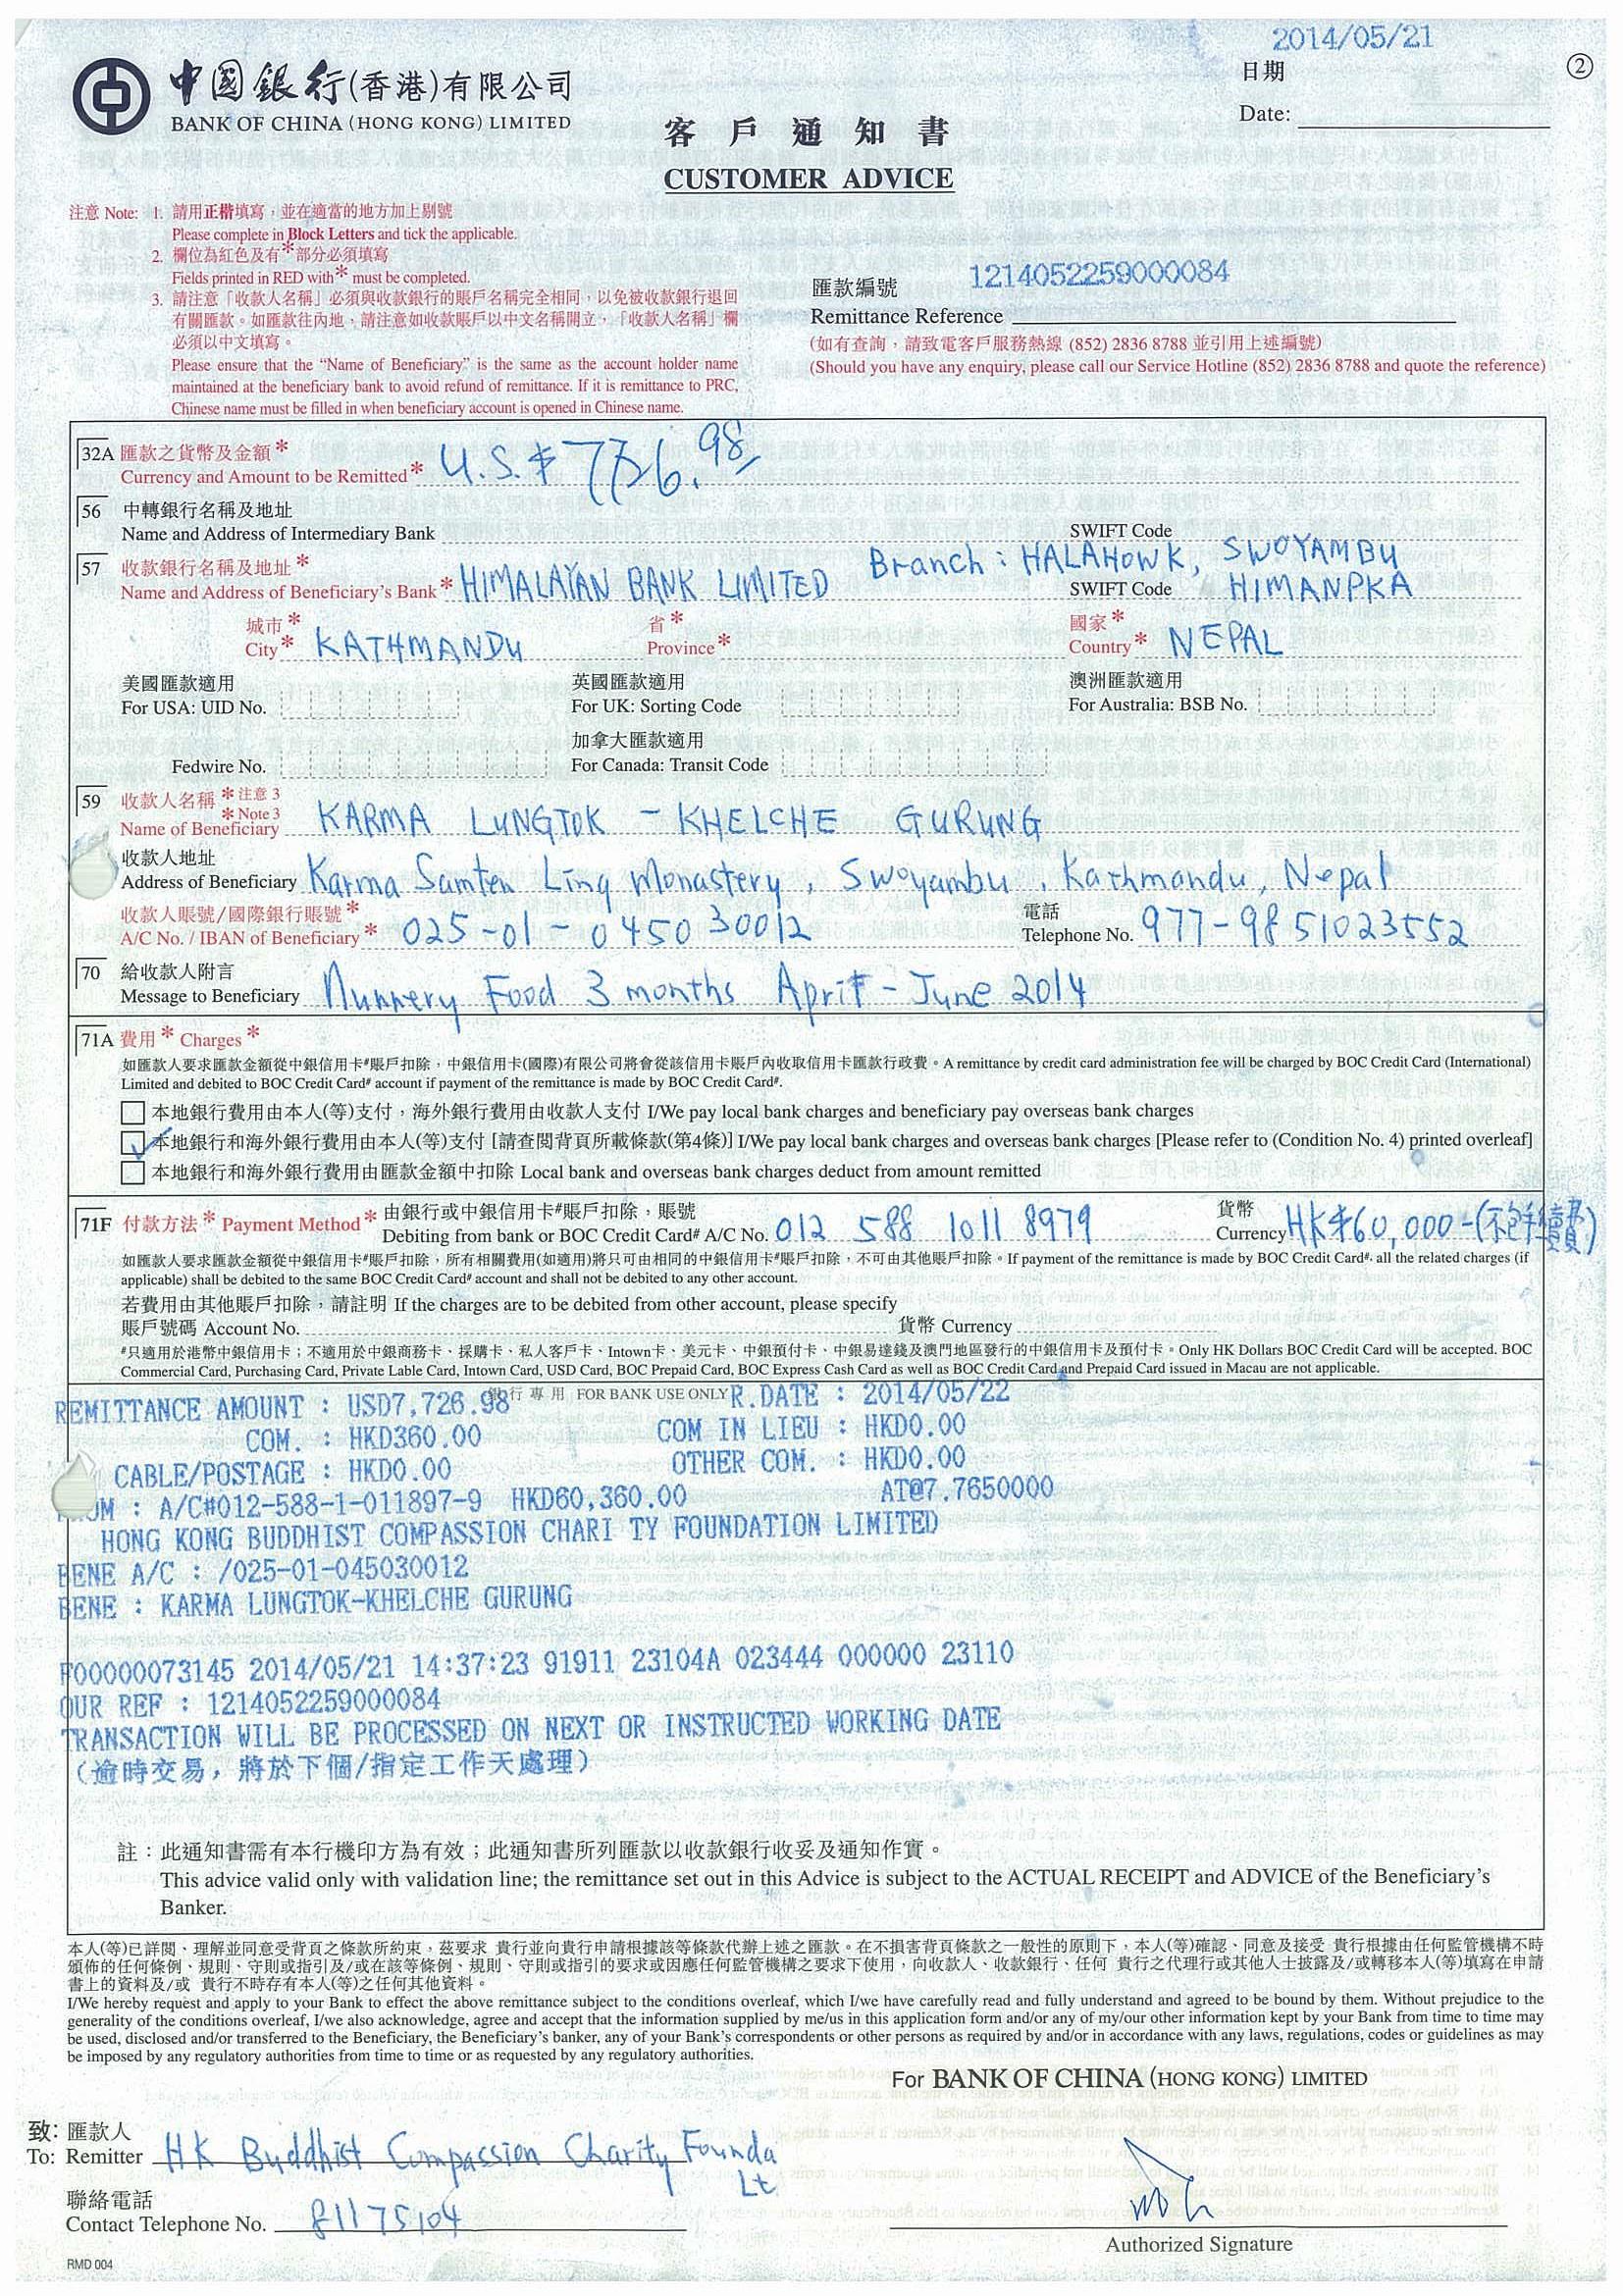 2014/05/21
中國銀行(香港)有限公司
BANK OF CHINA (HONG KONG) LIMITED
日期
Date:
②
客戶通知書
CUSTOMER ADVICE
注意 Note: 1. 請用正楷填寫，並在適當的地方加上剔號
Please complete in Block Letters and tick the applicable.
2. 欄位為紅色及有*部分必須填寫
Fields printed in RED with* must be completed.
3. 請注意「收款人名稱」必須與收款銀行的賬戶名稱完全相同，以免被收款銀行退回
有關匯款。如匯款往內地，請注意如收款賬戶以中文名稱開立，「收款人名稱」欄
必須以中文填寫。
Please ensure that the “Name of Beneficiary” is the same as the account holder name
maintained at the beneficiary bank to avoid refund of remittance. If it is remittance to PRC,
Chinese name must be filled in when beneficiary account is opened in Chinese name.
匯款編號 1214052259000084
Remittance Reference
(如有查詢，請致電客戶服務熱線 (852) 2836 8788 並引用上述編號)
(Should you have any enquiry, please call our Service Hotline (852) 2836 8788 and quote the reference)
32A 匯款之貨幣及金額*
Currency and Amount to be Remitted* U.S.$ 7726.98
56 中轉銀行名稱及地址
Name and Address of Intermediary Bank SWIFT Code
57 收款銀行名稱及地址* Branch : HALAHOWK, SWOYAMBU
Name and Address of Beneficiary's Bank* HIMALAYAN BANK LIMITED SWIFT Code HIMANPKA
城市* 省* 國家*
City* KATHMANDU Province* Country* NEPAL
美國匯款適用 英國匯款適用 澳洲匯款適用
For USA: UID No. For UK: Sorting Code For Australia: BSB No.
加拿大匯款適用
Fedwire No. For Canada: Transit Code
59 收款人名稱 *注意 3
*Note 3
Name of Beneficiary KARMA LUNGTOK - KHELCHE GURUNG
收款人地址
Address of Beneficiary Karma Samten Ling Monastery, Swoyambu, Kathmandu, Nepal
收款人賬號/國際銀行賬號* 電話
A/C No. / IBAN of Beneficiary* 025-01-045030012 Telephone No. 977-9851023552
70 給收款人附言
Message to Beneficiary Nunnery Food 3 months April - June 2014
71A 費用* Charges*
如匯款人要求匯款金額從中銀信用卡#賬戶扣除，中銀信用卡(國際)有限公司將會從該信用卡賬戶內收取信用卡匯款行政費。A remittance by credit card administration fee will be charged by BOC Credit Card (International)
Limited and debited to BOC Credit Card# account if payment of the remittance is made by BOC Credit Card#.
本地銀行費用由本人(等)支付，海外銀行費用由收款人支付 I/We pay local bank charges and beneficiary pay overseas bank charges
✓ 本地銀行和海外銀行費用由本人(等)支付 [請查閱背頁所載條款(第4條)] I/We pay local bank charges and overseas bank charges [Please refer to (Condition No. 4) printed overleaf]
本地銀行和海外銀行費用由匯款金額中扣除 Local bank and overseas bank charges deduct from amount remitted
71F 付款方法* Payment Method* 由銀行或中銀信用卡#賬戶扣除，賬號 貨幣
Debiting from bank or BOC Credit Card# A/C No. 012 588 1011 8979 Currency HK$60,000-(不包手續費)
如匯款人要求匯款金額從中銀信用卡#賬戶扣除，所有相關費用(如適用)將只可由相同的中銀信用卡#賬戶扣除，不可由其他賬戶扣除。If payment of the remittance is made by BOC Credit Card#, all the related charges (if
applicable) shall be debited to the same BOC Credit Card# account and shall not be debited to any other account.
若費用由其他賬戶扣除，請註明 If the charges are to be debited from other account, please specify
賬戶號碼 Account No. 貨幣 Currency
#只適用於港幣中銀信用卡；不適用於中銀商務卡、採購卡、私人客戶卡、Intown卡、美元卡、中銀預付卡、中銀易達錢及澳門地區發行的中銀信用卡及預付卡。Only HK Dollars BOC Credit Card will be accepted. BOC
Commercial Card, Purchasing Card, Private Lable Card, Intown Card, USD Card, BOC Prepaid Card, BOC Express Cash Card as well as BOC Credit Card and Prepaid Card issued in Macau are not applicable.
行專用 FOR BANK USE ONLY
REMITTANCE AMOUNT : USD7,726.98 R.DATE : 2014/05/22
COM. : HKD360.00 COM IN LIEU : HKD0.00
CABLE/POSTAGE : HKD0.00 OTHER COM. : HKD0.00
OM : A/C#012-588-1-011897-9 HKD60,360.00 AT@7.7650000
HONG KONG BUDDHIST COMPASSION CHARI TY FOUNDATION LIMITED
BENE A/C : /025-01-045030012
BENE : KARMA LUNGTOK-KHELCHE GURUNG
F00000073145 2014/05/21 14:37:23 91911 23104A 023444 000000 23110
OUR REF : 1214052259000084
TRANSACTION WILL BE PROCESSED ON NEXT OR INSTRUCTED WORKING DATE
(逾時交易，將於下個/指定工作天處理)
註：此通知書需有本行機印方為有效；此通知書所列匯款以收款銀行收妥及通知作實。
This advice valid only with validation line; the remittance set out in this Advice is subject to the ACTUAL RECEIPT and ADVICE of the Beneficiary's
Banker.
本人(等)已詳閱、理解並同意受背頁之條款所約束，茲要求 貴行並向貴行申請根據該等條款代辦上述之匯款。在不損害背頁條款之一般性的原則下，本人(等)確認、同意及接受 貴行根據由任何監管機構不時
頒佈的任何條例、規則、守則或指引及/或在該等條例、規則、守則或指引的要求或因應任何監管機構之要求下使用，向收款人、收款銀行、任何 貴行之代理行或其他人士披露及/或轉移本人(等)填寫在申請
書上的資料及/或 貴行不時存有本人(等)之任何其他資料。
I/We hereby request and apply to your Bank to effect the above remittance subject to the conditions overleaf, which I/we have carefully read and fully understand and agreed to be bound by them. Without prejudice to the
generality of the conditions overleaf, I/we also acknowledge, agree and accept that the information supplied by me/us in this application form and/or any of my/our other information kept by your Bank from time to time may
be used, disclosed and/or transferred to the Beneficiary, the Beneficiary's banker, any of your Bank's correspondents or other persons as required by and/or in accordance with any laws, regulations, codes or guidelines as may
be imposed by any regulatory authorities from time to time or as requested by any regulatory authorities.
For BANK OF CHINA (HONG KONG) LIMITED
致: 匯款人
To: Remitter HK Buddhist Compassion Charity Founda
Lt
聯絡電話
Contact Telephone No. 81175104
Authorized Signature
RMD 004